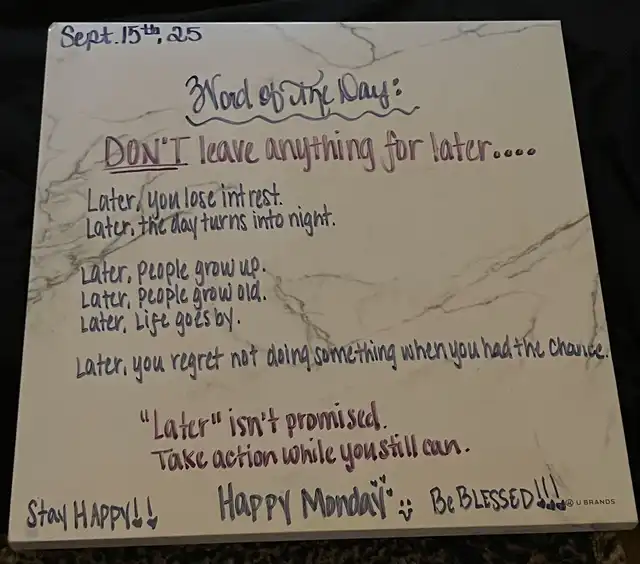 Sept. 15th, 25
Word of the Day:
DON'T leave anything for later....
Later, you lose intrest.
Later, the day turns into night.
Later, people grow up.
Later, people grow old.
Later, Life goes by.
Later, you regret not doing something when you had the chance.
"Later" isn't promised.
Take action while you still can.
Stay HAPPY!! Happy Monday Be BLESSED!!!
U BRANDS